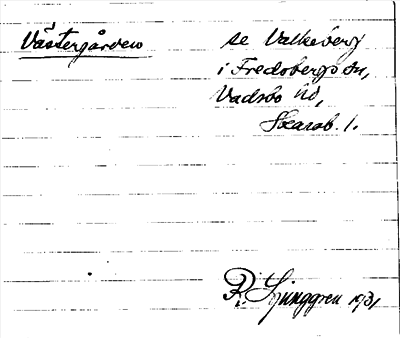 Västergården
se Valkeberg
i Fredsbergs sn,
Vadsbo hd,
Skarab. l.
R. Ljunggren 1931